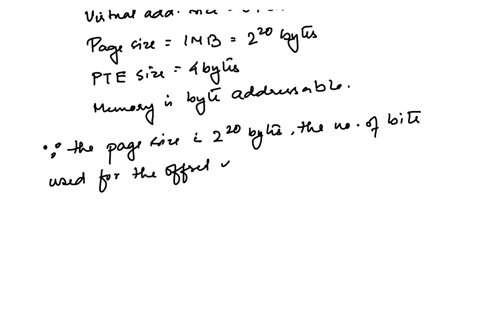 Virtual add.
Page size = 1MB = 2^20 bytes
PTE size = 4 bytes
Memory is byte addressable.
∵ the page size is 2^20 bytes, the no. of bits
used for the offset